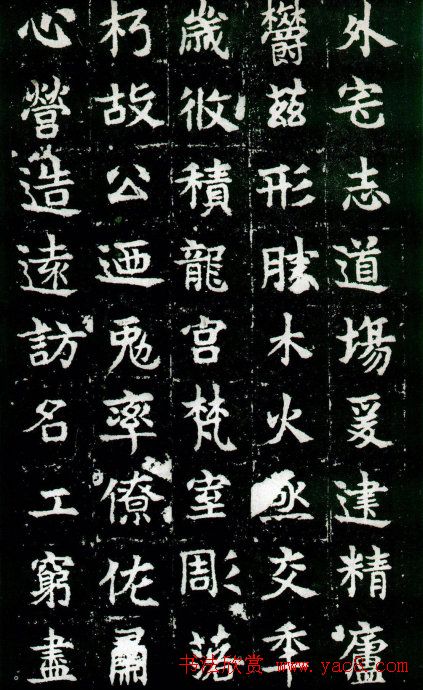 外宅志道場爰建精廬
欝茲形勝木火亟交年
歲攸積龍宮梵室彫落
朽故公迺率僚佐肅
心營造遠訪名工窮盡
书法欣赏 www.yac8.com